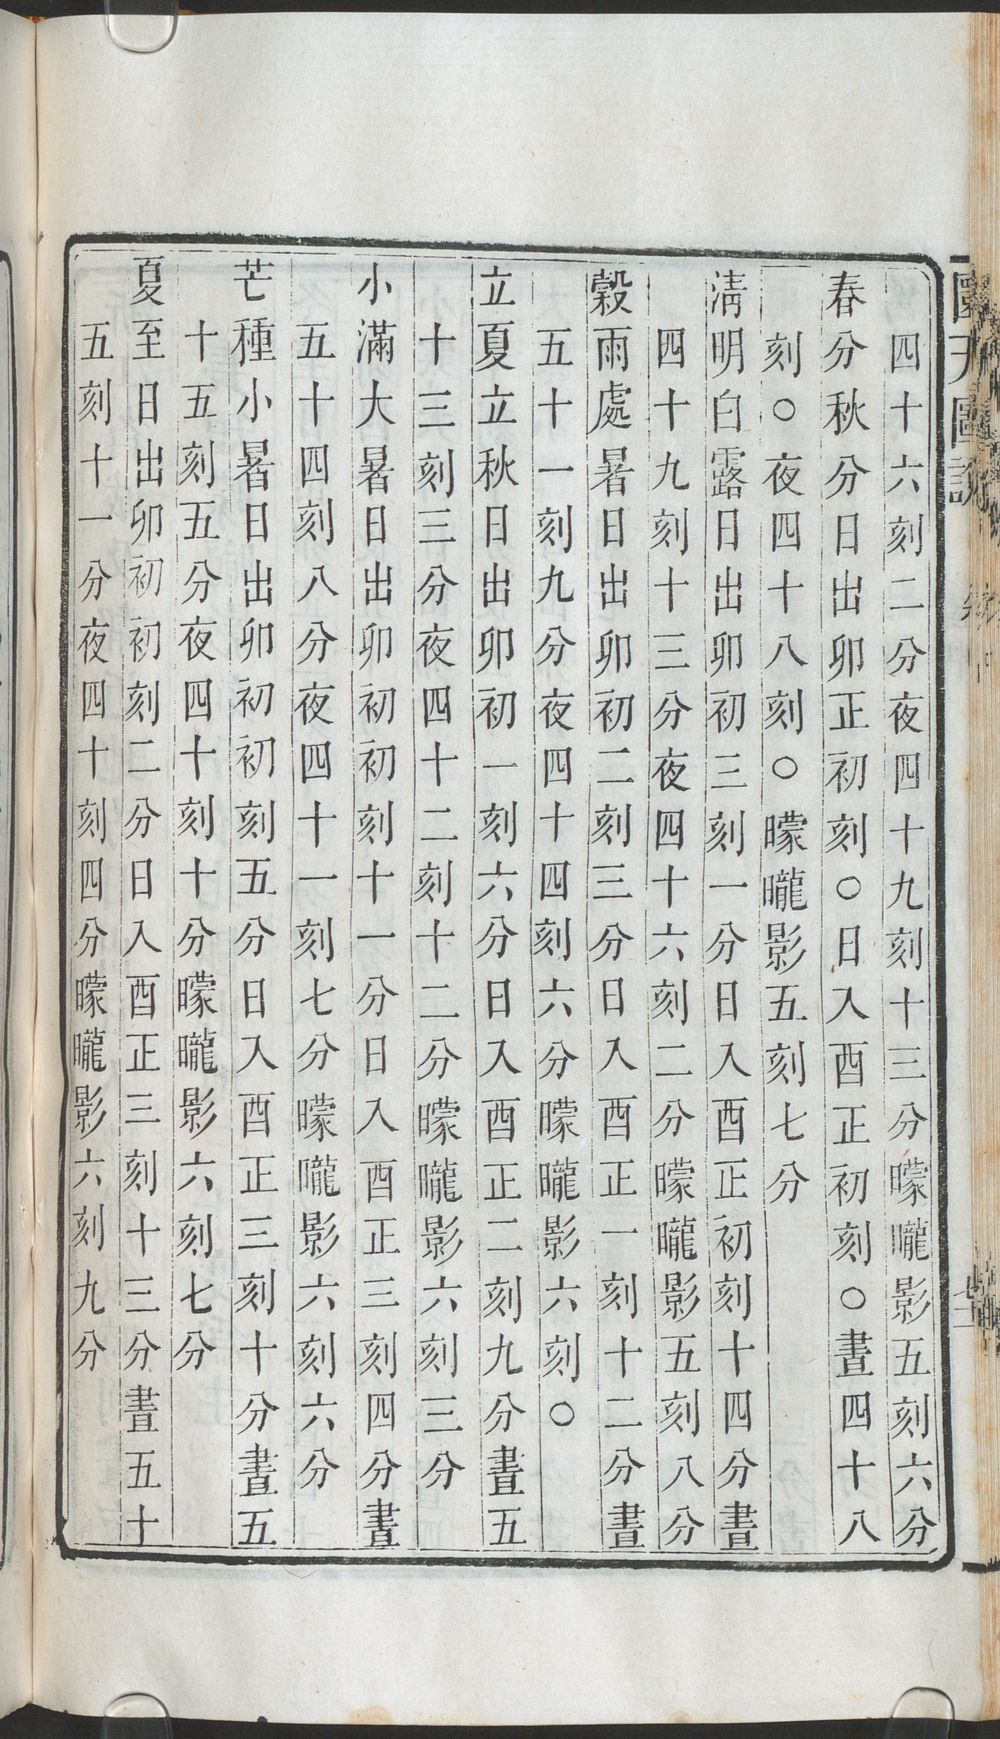 四十六刻二分夜四十九刻十三分曚曨影五刻六分
春分秋分日出卯正初刻○日入酉正初刻○晝四十八
刻○夜四十八刻○曚曨影五刻七分
淸明白露日出卯初三刻一分日入酉正初刻十四分晝
四十九刻十三分夜四十六刻二分曚曨影五刻八分
穀雨處暑日出卯初二刻三分日入酉正一刻十二分晝
五十一刻九分夜四十四刻六分曚曨影六刻○
立夏立秋日出卯初一刻六分日入酉正二刻九分晝五
十三刻三分夜四十二刻十二分曚曨影六刻三分
小滿大暑日出卯初初刻十一分日入酉正三刻四分晝
五十四刻八分夜四十一刻七分曚曨影六刻六分
芒種小暑日出卯初初刻五分日入酉正三刻十分晝五
十五刻五分夜四十刻十分曚曨影六刻七分
夏至日出卯初初刻二分日入酉正三刻十三分晝五十
五刻十一分夜四十刻四分曚曨影六刻九分